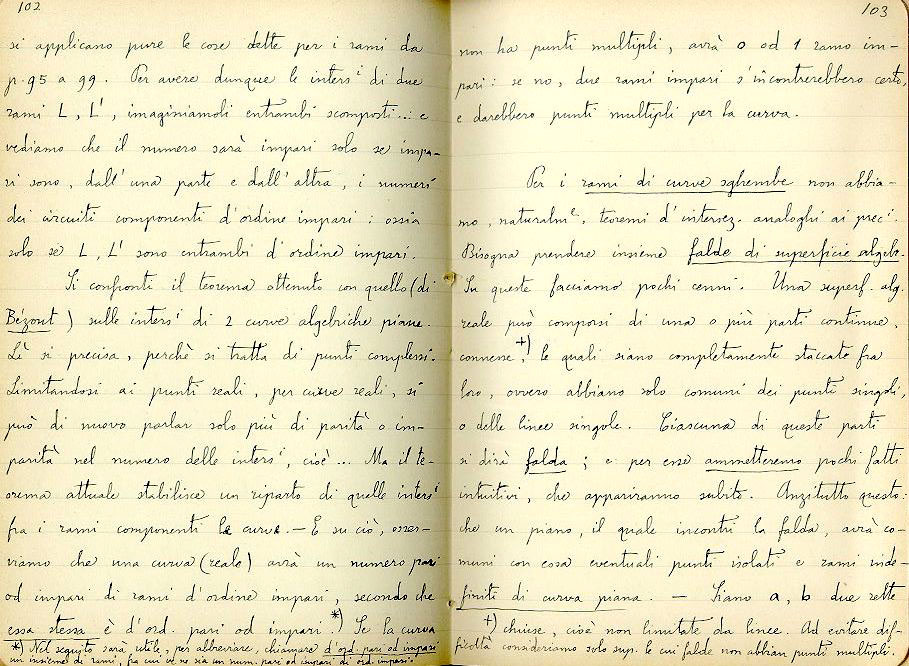 102
si applicano pure le cose dette per i rami da
p. 95 a 99. Per avere dunque le intersⁱ di due
rami L, L', imaginiamoli entrambi scomposti...: e
vediamo che il numero sarà impari solo se impa-
ri sono, dall'una parte e dall'altra, i numeri
dei circuiti componenti d'ordine impari: ossia
solo se L, L' sono entrambi d'ordine impari.
Si confronti il teorema ottenuto con quello (di
Bézout) sulle intersⁱ di 2 curve algebriche piane.
Là si precisa, perchè si tratta di punti complessi.
Limitandosi ai punti reali, per curve reali, si
può di nuovo parlar solo più di parità o im-
parità nel numero delle intersⁱ, cioè... Ma il te-
orema attuale stabilisce un riparto di quelle intersⁱ
fra i rami componenti le curve. — E su ciò, osser-
viamo che una curva (reale) avrà un numero pari
od impari di rami d'ordine impari, secondo che
essa stessa è d'ord. pari od impari.*) Se la curva
*) Nel seguito sarà utile, per abbreviare, chiamare d'ord. pari od impari
un insieme di rami, fra cui ve ne sia un num. pari od impari di ord. impari.
103
non ha punti multipli, avrà 0 od 1 ramo im-
pari: se no, due rami impari s'incontrerebbero certo,
e darebbero punti multipli per la curva.
Per i rami di curve sghembe non abbia-
mo, naturalmᵗᵉ, teoremi d'intersez. analoghi ai precⁱ.
Bisogna prendere insieme falde di superficie algebr.
Su queste facciamo pochi cenni. Una superf. alg.
reale può comporsi di una o più parti continue,
connesse +) le quali siano completamente staccate fra
loro, ovvero abbiano solo comuni dei punti singoli,
o delle linee singole. Ciascuna di queste parti
si dirà falda; e per esse ammetteremo pochi fatti
intuitivi, che appariranno subito. Anzitutto questo:
che un piano, il quale incontri la falda, avrà co-
muni con essa eventuali punti isolati e rami inde-
finiti di curva piana. — Siano a, b due rette
+) chiuse, cioè non limitate da linee. Ad evitare dif-
ficoltà consideriamo solo sup. le cui falde non abbian punti multipli.